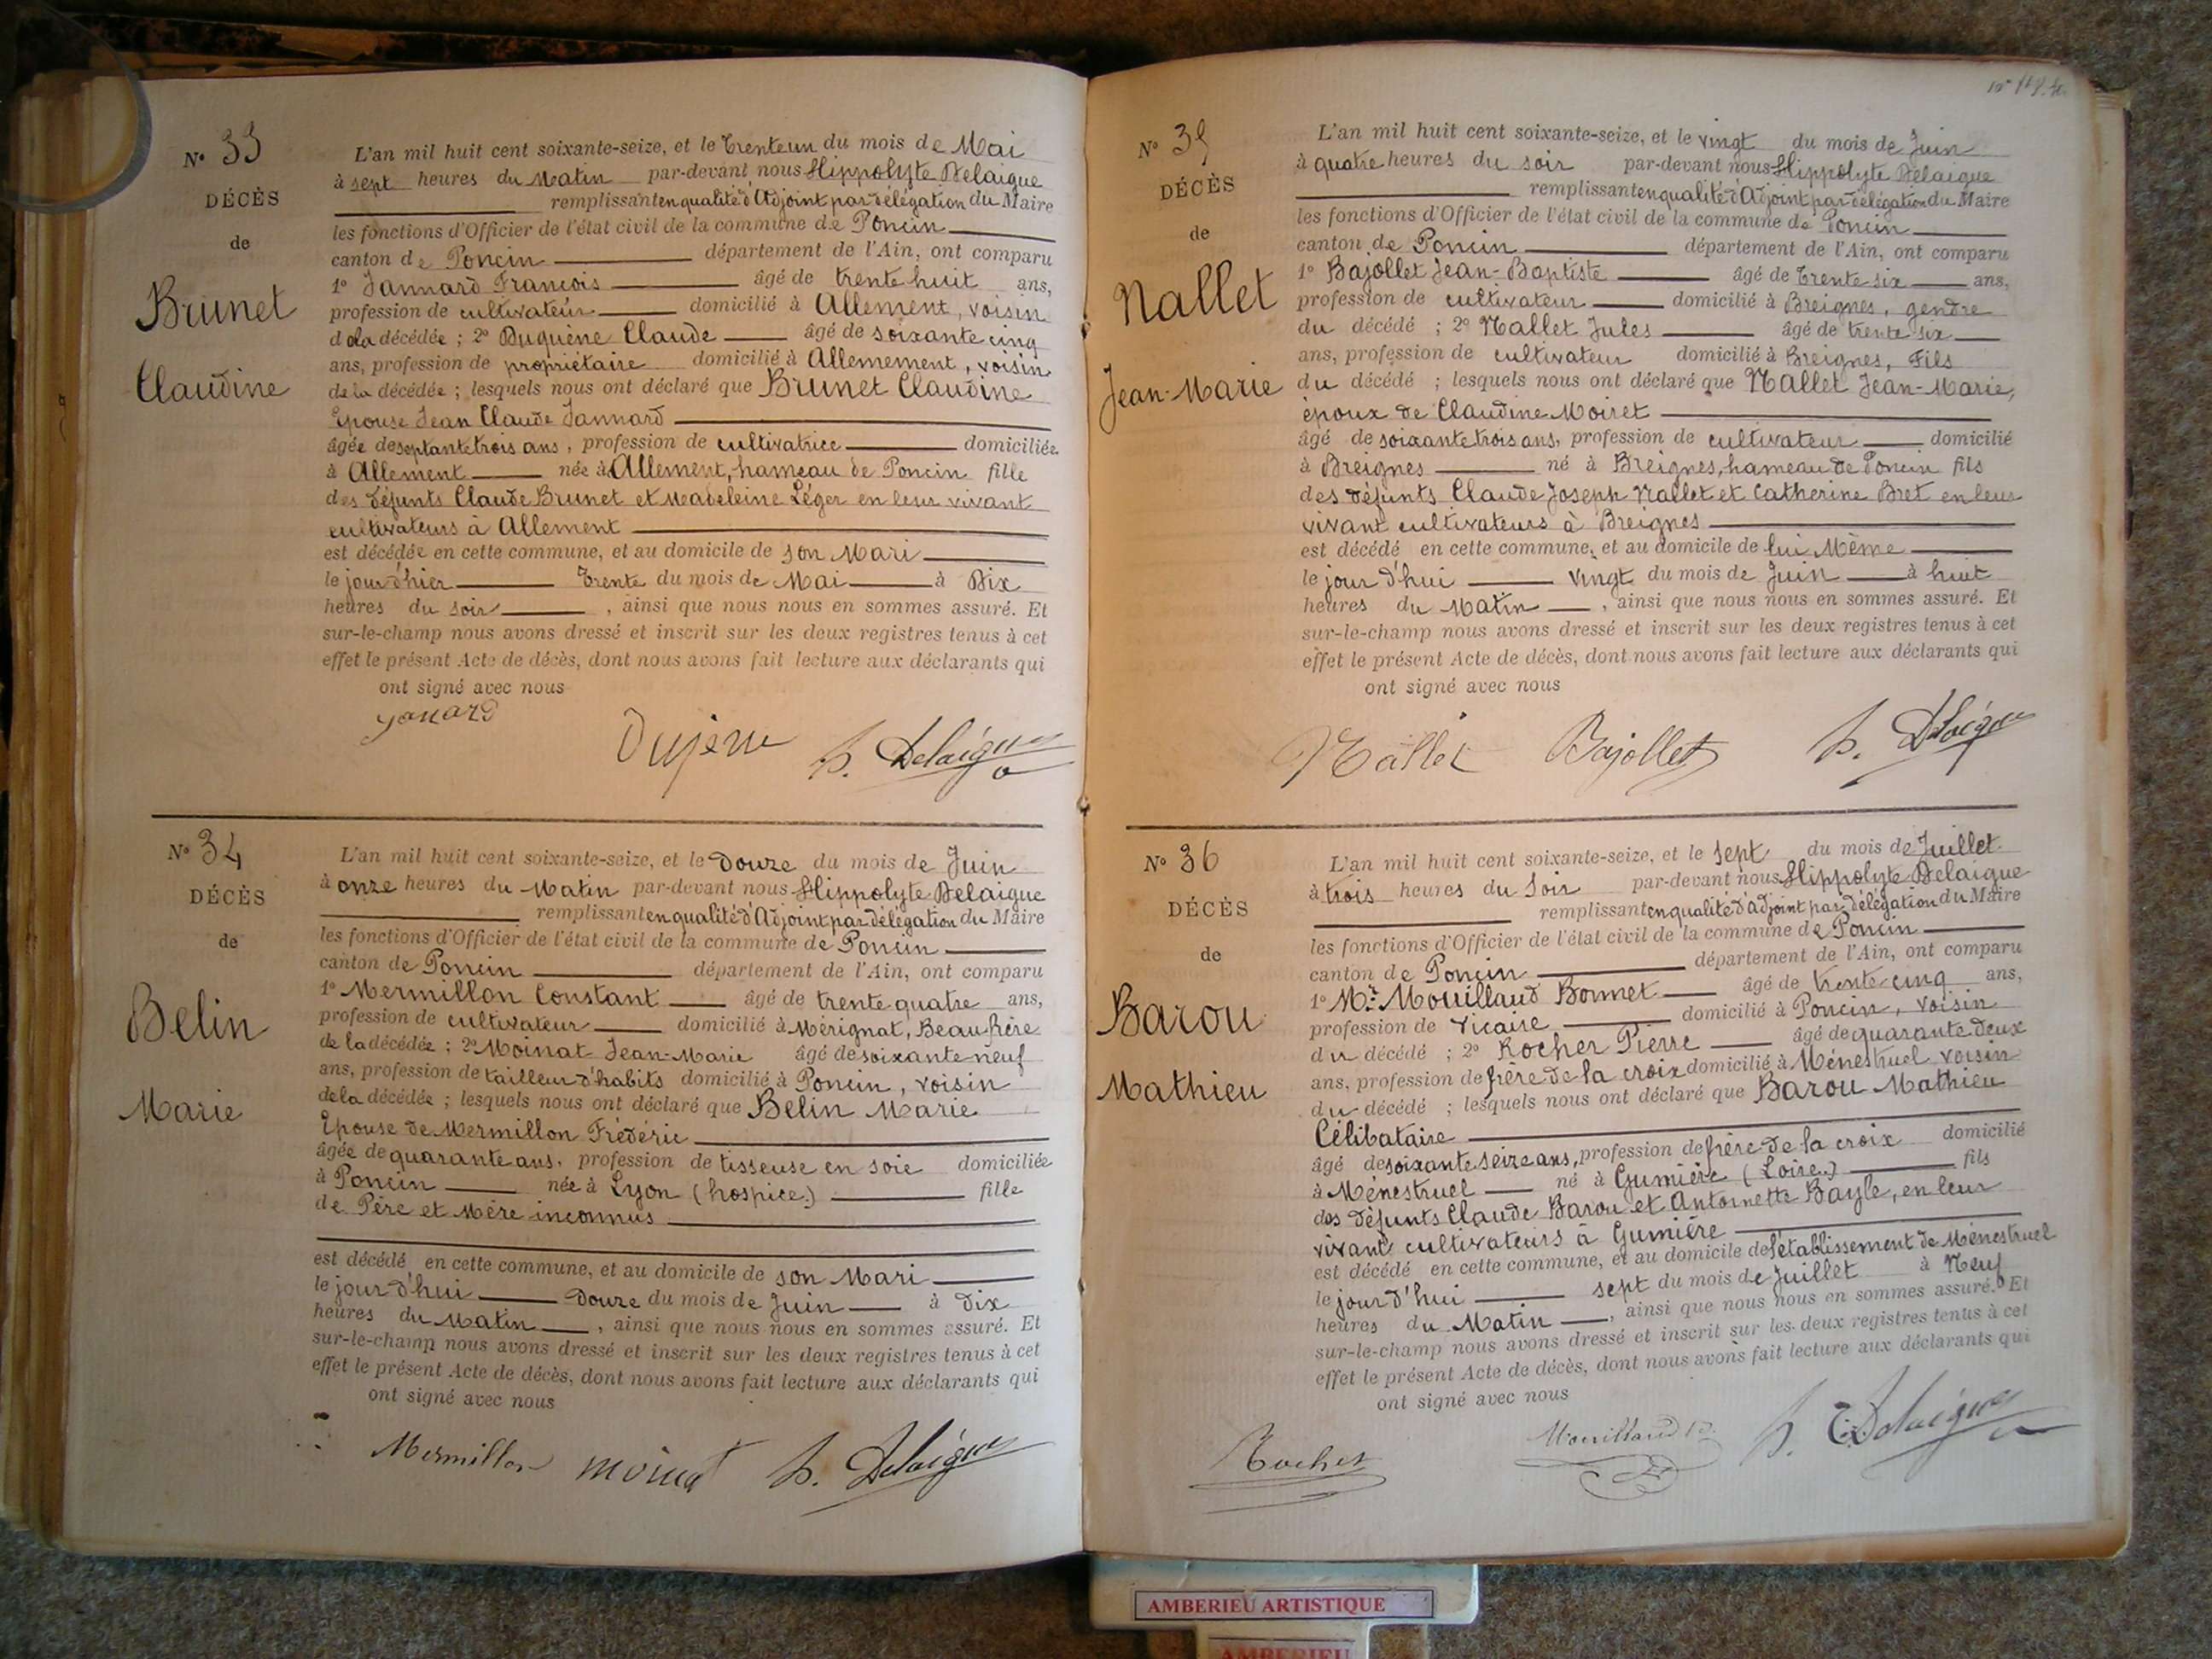 N° 33
DÉCÈS
de
Brunet
Claudine
L'an mil huit cent soixante-seize, et le trenteun du mois de Mai
à sept heures du Matin par-devant nous Hippolyte Delaigue
remplissant en qualité d'Adjoint par délégation du Maire
les fonctions d'Officier de l'état civil de la commune de Poncin
canton de Poncin département de l'Ain, ont comparu
1° Jannard Francois âgé de trente huit ans,
profession de cultivateur domicilié à Allement, voisin
de la décédée ; 2° Duguène Claude âgé de soixante cinq
ans, profession de propriétaire domicilié à Allemement, voisin
de la décédée ; lesquels nous ont déclaré que Brunet Claudine
Epouse Jean Claude Jannard
âgée de septante trois ans, profession de cultivatrice domiciliée
à Allement née à Allement, hameau de Poncin fille
des défunts Claude Brunet et Madeleine Léger en leur vivant
cultivateurs à Allement
est décédée en cette commune, et au domicile de son Mari
le jour d'hier trente du mois de Mai à Dix
heures du soir, ainsi que nous nous en sommes assuré. Et
sur-le-champ nous avons dressé et inscrit sur les deux registres tenus à cet
effet le présent Acte de décès, dont nous avons fait lecture aux déclarants qui
ont signé avec nous
Janard
Dujène H. Delaigue
N° 34
DÉCÈS
de
Belin
Marie
L'an mil huit cent soixante-seize, et le Douze du mois de Juin
à onze heures du Matin par-devant nous Hippolyte Delaigue
remplissant en qualité d'Adjoint par délégation du Maire
les fonctions d'Officier de l'état civil de la commune de Poncin
canton de Poncin département de l'Ain, ont comparu
1° Mermillon Constant âgé de trente quatre ans,
profession de cultivateur domicilié à Mérignat, Beau frère
de la décédée ; 2° Moinat Jean-Marie âgé de soixante neuf
ans, profession de tailleur d'habits domicilié à Poncin, voisin
de la décédée ; lesquels nous ont déclaré que Belin Marie
Epouse de Mermillon Frédéric
âgée de quarante ans, profession de tisseuse en soie domiciliée
à Poncin née à Lyon (hospice) fille
de Père et Mère inconnus
est décédé en cette commune, et au domicile de son Mari
le jour d'hui Douze du mois de Juin à Dix
heures du Matin, ainsi que nous nous en sommes assuré. Et
sur-le-champ nous avons dressé et inscrit sur les deux registres tenus à cet
effet le présent Acte de décès, dont nous avons fait lecture aux déclarants qui
ont signé avec nous
Mermillon moinat H. Delaigue
N° 35
DÉCÈS
de
Nallet
Jean-Marie
L'an mil huit cent soixante-seize, et le vingt du mois de Juin
à quatre heures du soir par-devant nous Hippolyte Delaigue
remplissant en qualité d'Adjoint par délégation du Maire
les fonctions d'Officier de l'état civil de la commune de Poncin
canton de Poncin département de l'Ain, ont comparu
1° Bajollet Jean-Baptiste âgé de trente six ans,
profession de cultivateur domicilié à Breignes, gendre
du décédé ; 2° Nallet Jules âgé de trente six
ans, profession de cultivateur domicilié à Breignes, Fils
du décédé ; lesquels nous ont déclaré que Nallet Jean-Marie,
époux de Claudine Moiret
âgé de soixante trois ans, profession de cultivateur domicilié
à Breignes né à Breignes, hameau de Poncin fils
des défunts Claude Joseph Nallet et Catherine Bret en leur
vivant cultivateurs à Breignes
est décédé en cette commune, et au domicile de lui Même
le jour d'hui vingt du mois de Juin à huit
heures du Matin, ainsi que nous nous en sommes assuré. Et
sur-le-champ nous avons dressé et inscrit sur les deux registres tenus à cet
effet le présent Acte de décès, dont nous avons fait lecture aux déclarants qui
ont signé avec nous
Nallet Bajollet H. Delaigue
N° 36
DÉCÈS
de
Barou
Mathieu
L'an mil huit cent soixante-seize, et le sept du mois de Juillet
à trois heures du soir par-devant nous Hippolyte Delaigue
remplissant en qualité d'Adjoint par délégation du Maire
les fonctions d'Officier de l'état civil de la commune de Poncin
canton de Poncin département de l'Ain, ont comparu
1° Mr Mouillaud Bonnet âgé de trente cinq ans,
profession de Vicaire domicilié à Poncin, voisin
du décédé ; 2° Rocher Pierre âgé de quarante deux
ans, profession de frère de la croix domicilié à Ménestruel voisin
du décédé ; lesquels nous ont déclaré que Barou Mathieu
Célibataire
âgé de soixante seize ans, profession de frère de la croix domicilié
à Ménestruel né à Gumière (Loire) fils
des défunts Claude Barou et Antoinette Bayle, en leur
vivant cultivateurs à Gumière
est décédé en cette commune, et au domicile de l'établissement de Ménestruel
le jour d'hui sept du mois de Juillet à Neuf
heures du Matin, ainsi que nous nous en sommes assuré. Et
sur-le-champ nous avons dressé et inscrit sur les deux registres tenus à cet
effet le présent Acte de décès, dont nous avons fait lecture aux déclarants qui
ont signé avec nous
Rocher Mouillaud B. H. Delaigue
AMBERIEU ARTISTIQUE
AMBERIEU